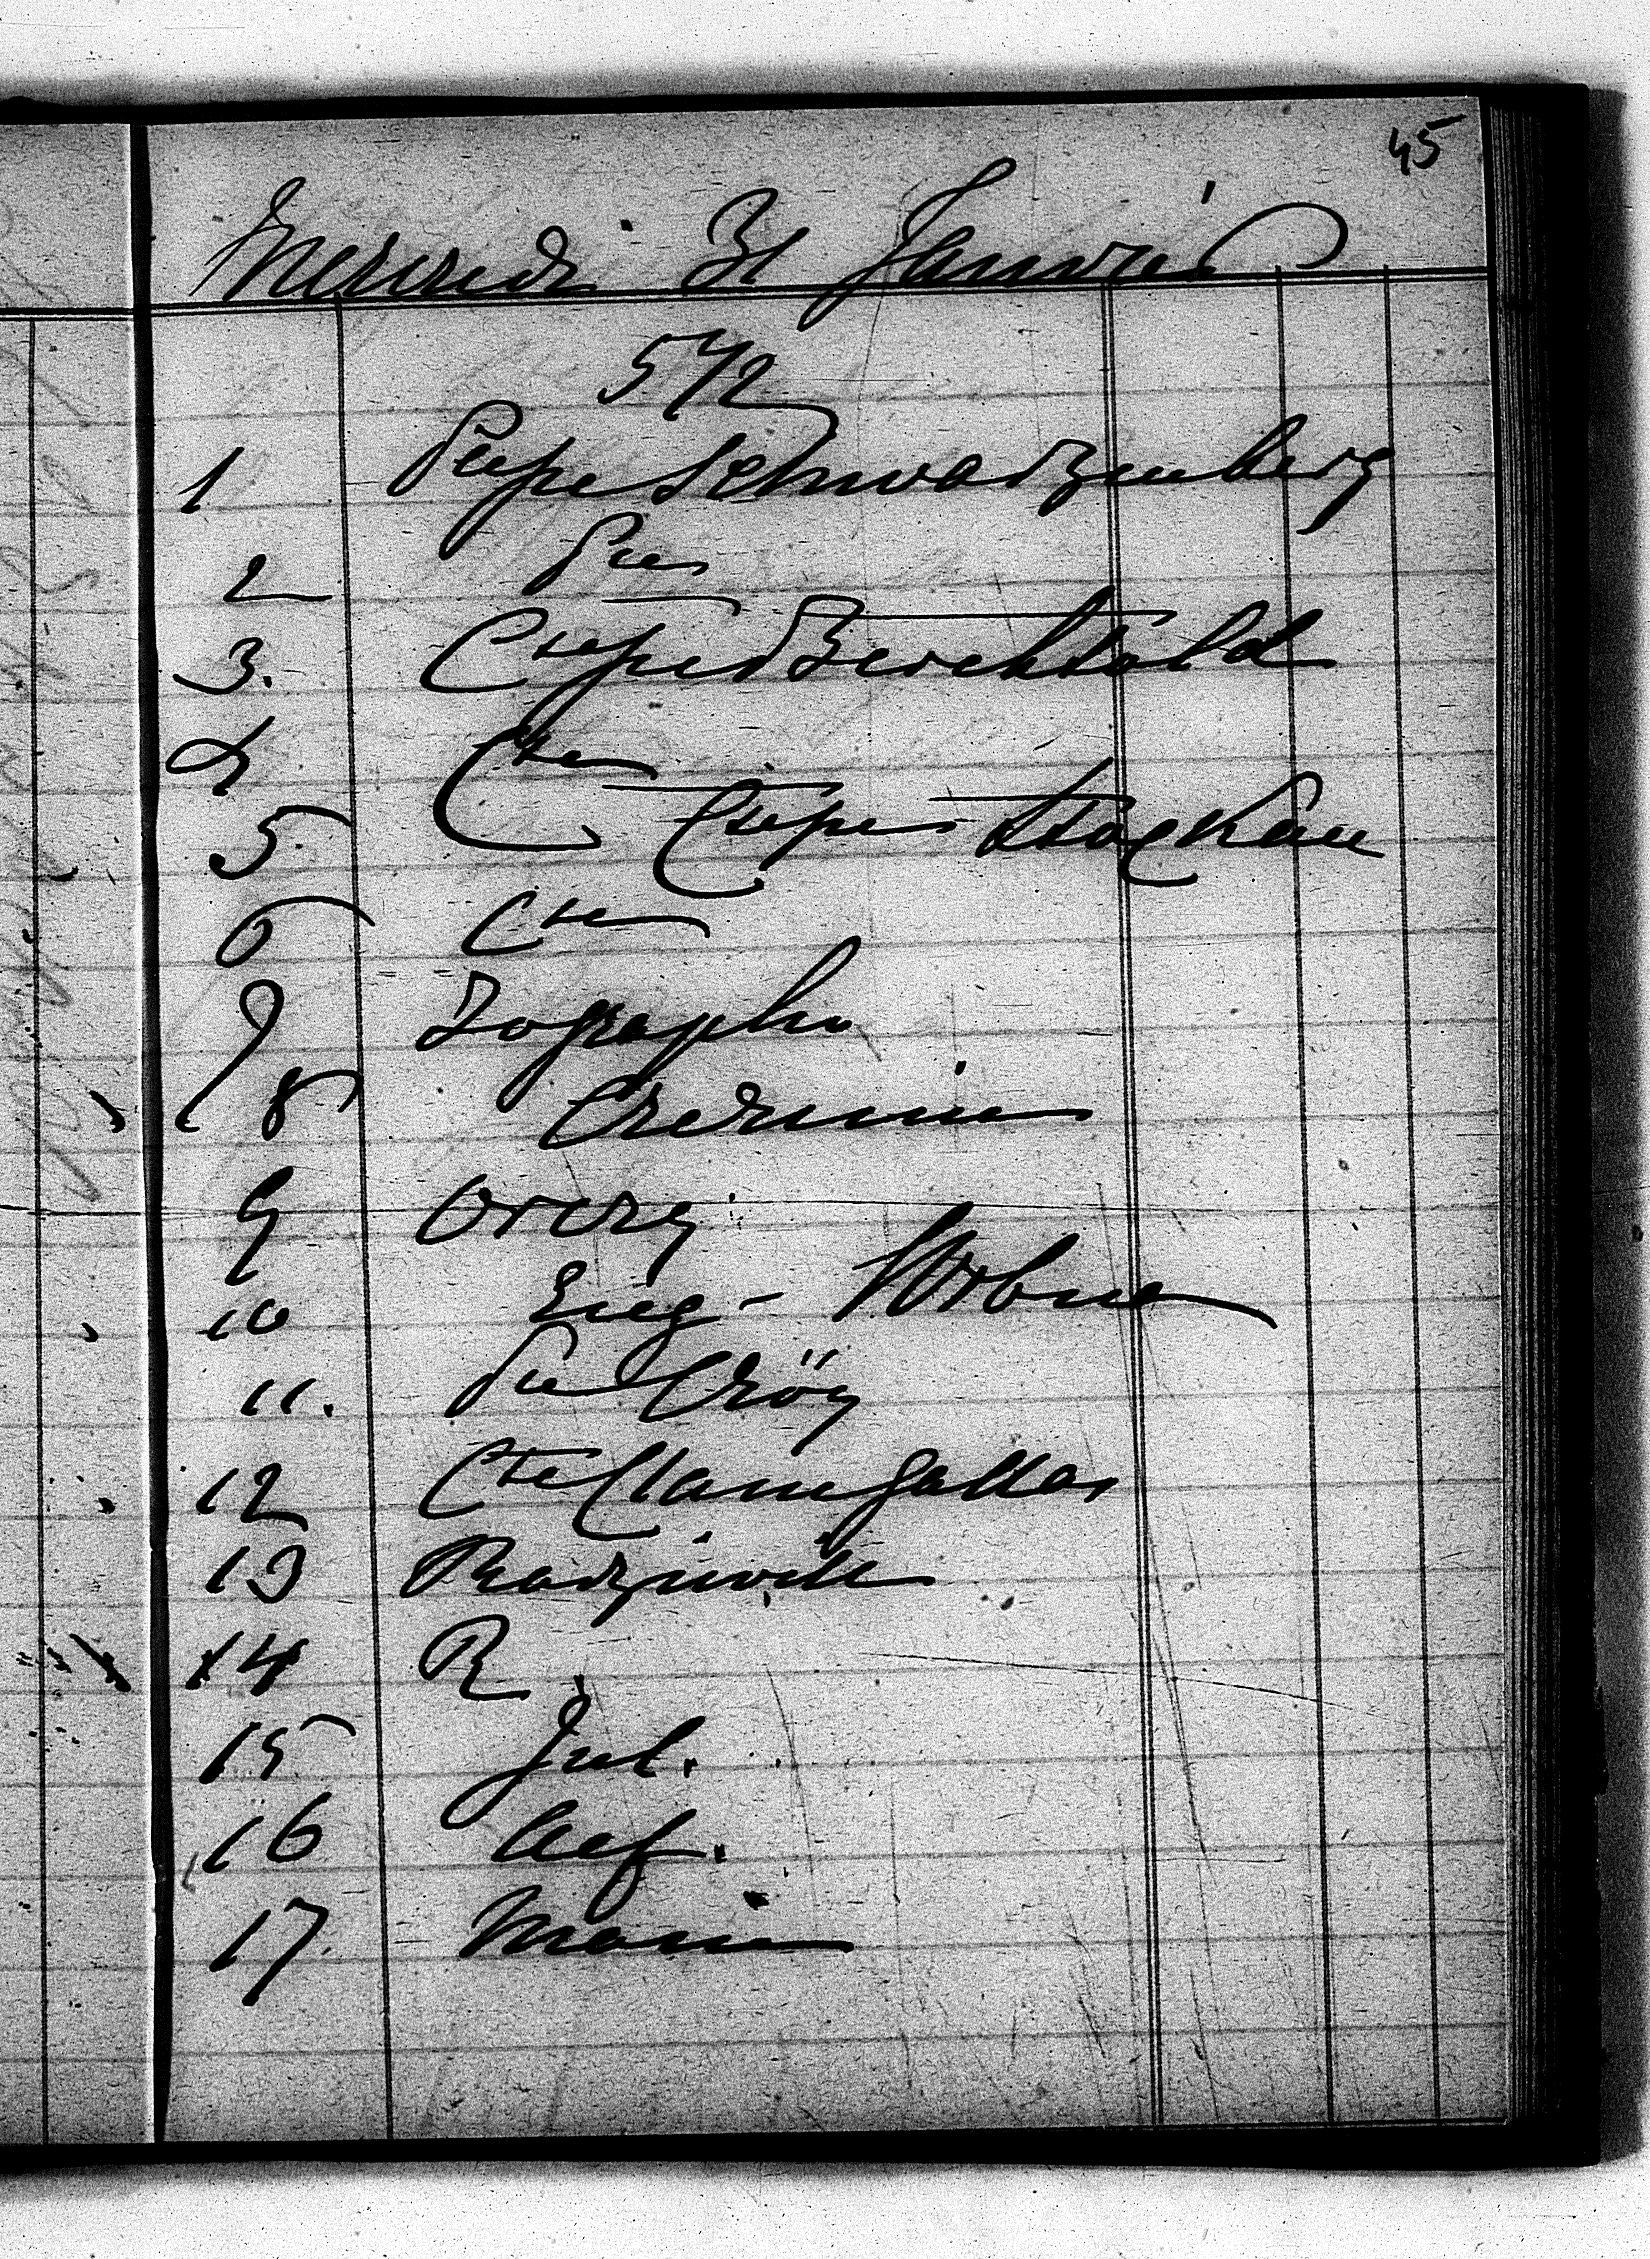 45
Mercredi 31 Janvier
5 1/2
1 Psse Schwarzenberg
2 Pce
3. Ctsse Berchtold
4 Cte
5 Ctsse Stockau
6 Cte
7 Zographo
8 Czernin
9 Orczy
10 Eug - Wrbna
11. Pce Cröy
12 Cte Clam Gallas
13 Radziwill
14 R
15 Jul.
16 Aef.
17 Marie